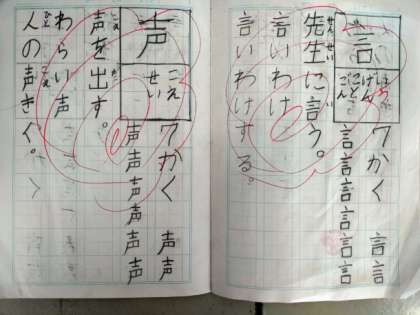 言
げん
こと
ごん
7かく 言言
言言言言言言
せんせい
先生に言う。
言いわけ
言いわけする。
声
こえ
せい
7かく 声声
声声声声声声
こえ だ
声を出す。
こえ
わらい声
ひと こえ
人の声きく。